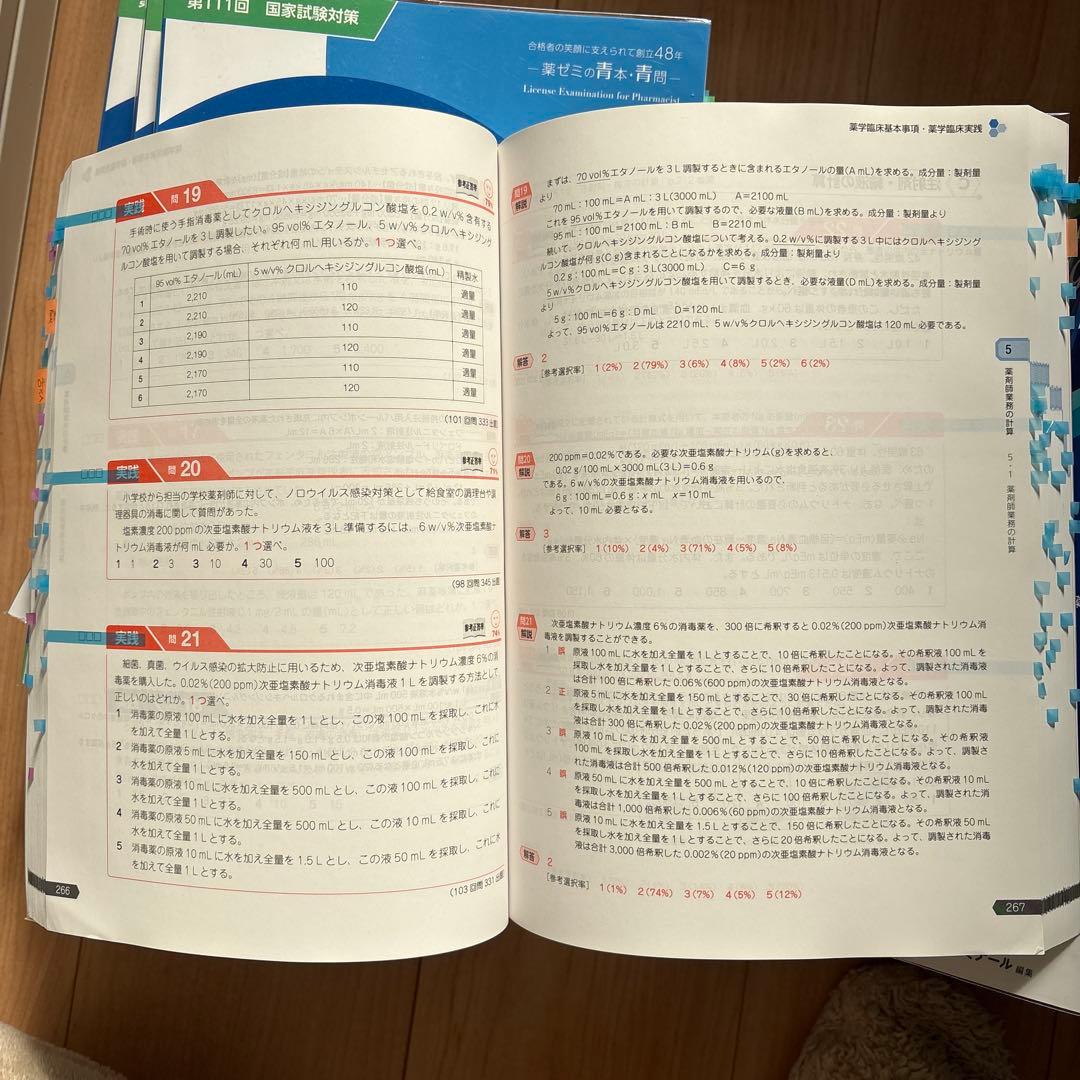 第111回 国家試験対策
合格者の笑顔に支えられて創立48年
―薬ゼミの青本・青問―
License Examination for Pharmacist
実践 問19
参考正答率
79%
手術時に使う手指消毒薬としてクロルヘキシジングルコン酸塩を0.2 w/v%含有する
70 vol%エタノールを3 L調製したい。95 vol%エタノール、5 w/v%クロルヘキシジング
ルコン酸塩を用いて調製する場合、それぞれ何mL用いるか。1つ選べ。
95 vol% エタノール(mL) 5 w/v% クロルヘキシジングルコン酸塩(mL) 精製水
1 2,210 110 適量
2 2,210 120 適量
3 2,190 110 適量
4 2,190 120 適量
5 2,170 110 適量
6 2,170 120 適量
(101回問333出題)
実践 問20
参考正答率
71%
小学校から担当の学校薬剤師に対して、ノロウイルス感染対策として給食室の調理台や調
理器具の消毒に関して質問があった。
塩素濃度200 ppmの次亜塩素酸ナトリウム液を3 L準備するには、6 w/v%次亜塩素酸ナ
トリウム消毒液が何mL必要か。1つ選べ。
1 1 2 3 3 10 4 30 5 100
(98回問345出題)
実践 問21
参考正答率
74%
細菌、真菌、ウイルス感染の拡大防止に用いるため、次亜塩素酸ナトリウム濃度6%の消
毒薬を購入した。0.02%(200 ppm)次亜塩素酸ナトリウム消毒液1 Lを調製する方法として
正しいのはどれか。1つ選べ。
1 消毒薬の原液100 mLに水を加え全量を1 Lとし、この液100 mLを採取し、これに水
を加えて全量1 Lとする。
2 消毒薬の原液5 mLに水を加え全量を150 mLとし、この液100 mLを採取し、これに
水を加えて全量1 Lとする。
3 消毒薬の原液10 mLに水を加え全量を500 mLとし、この液100 mLを採取し、これに
水を加えて全量1 Lとする。
4 消毒薬の原液50 mLに水を加え全量を500 mLとし、この液10 mLを採取し、これに
水を加えて全量1 Lとする。
5 消毒薬の原液10 mLに水を加え全量を1.5 Lとし、この液50 mLを採取し、これに水
を加えて全量1 Lとする。
(103回問331出題)
266
薬学臨床基本事項・薬学臨床実践
問19 解説
まずは、70 vol%エタノールを3 L調製するときに含まれるエタノールの量(A mL)を求める。成分量：製剤量
より
70 mL：100 mL＝A mL：3 L(3000 mL) A＝2100 mL
これを95 vol%エタノールを用いて調製するので、必要な液量(B mL)を求める。成分量：製剤量より
95 mL：100 mL＝2100 mL：B mL B＝2210 mL
続いて、クロルヘキシジングルコン酸塩について考える。0.2 w/v%に調製する3 L中にはクロルヘキシジング
ルコン酸塩が何g(C g)含まれることになるかを求める。成分量：製剤量より
0.2 g：100 mL＝C g：3 L(3000 mL) C＝6 g
5 w/v%クロルヘキシジングルコン酸塩を用いて調製するとき、必要な液量(D mL)を求める。成分量：製剤量
より
5 g：100 mL＝6 g：D mL D＝120 mL
よって、95 vol%エタノールは2210 mL、5 w/v%クロルヘキシジングルコン酸塩は120 mL必要である。
解答 2
[参考選択率] 1(2%) 2(79%) 3(6%) 4(8%) 5(2%) 6(2%)
問20 解説
200 ppm＝0.02%である。必要な次亜塩素酸ナトリウム(g)を求めると、
0.02 g/100 mL×3000 mL(3 L)＝0.6 g
である。6 w/v%次亜塩素酸ナトリウム消毒液を用いるので、
6 g：100 mL＝0.6 g：x mL x＝10 mL
よって、10 mL必要となる。
解答 3
[参考選択率] 1(10%) 2(4%) 3(71%) 4(5%) 5(8%)
問21 解説
次亜塩素酸ナトリウム濃度6%の消毒薬を、300倍に希釈すると0.02%(200 ppm)次亜塩素酸ナトリウム消
毒液を調製することができる。
1 誤 原液100 mLに水を加え全量を1 Lとすることで、10倍に希釈したことになる。その希釈液100 mLを
採取し水を加え全量を1 Lとすることで、さらに10倍希釈したことになる。よって、調製された消毒液
は合計100倍に希釈した0.06%(600 ppm)の次亜塩素酸ナトリウム消毒液となる。
2 正 原液5 mLに水を加え全量を150 mLとすることで、30倍に希釈したことになる。その希釈液100 mL
を採取し水を加え全量を1 Lとすることで、さらに10倍希釈したことになる。よって、調製された消毒
液は合計300倍に希釈した0.02%(200 ppm)の次亜塩素酸ナトリウム消毒液となる。
3 誤 原液10 mLに水を加え全量を500 mLとすることで、50倍に希釈したことになる。その希釈液
100 mLを採取し水を加え全量を1 Lとすることで、さらに10倍希釈したことになる。よって、調製さ
れた消毒液は合計500倍希釈した0.012%(120 ppm)の次亜塩素酸ナトリウム消毒液となる。
4 誤 原液50 mLに水を加え全量を500 mLとすることで、10倍に希釈したことになる。その希釈液10 mL
を採取し水を加え全量を1 Lとすることで、さらに100倍希釈したことになる。よって、調製された消
毒液は合計1,000倍希釈した0.006%(60 ppm)の次亜塩素酸ナトリウム消毒液となる。
5 誤 原液10 mLに水を加え全量を1.5 Lとすることで、150倍に希釈したことになる。その希釈液50 mL
を採取し水を加え全量を1 Lとすることで、さらに20倍希釈したことになる。よって、調製された消毒
液は合計3,000倍希釈した0.002%(20 ppm)の次亜塩素酸ナトリウム消毒液となる。
解答 2
[参考選択率] 1(1%) 2(74%) 3(7%) 4(5%) 5(12%)
5
薬剤師業務の計算
5・1 薬剤師業務の計算
267
編集